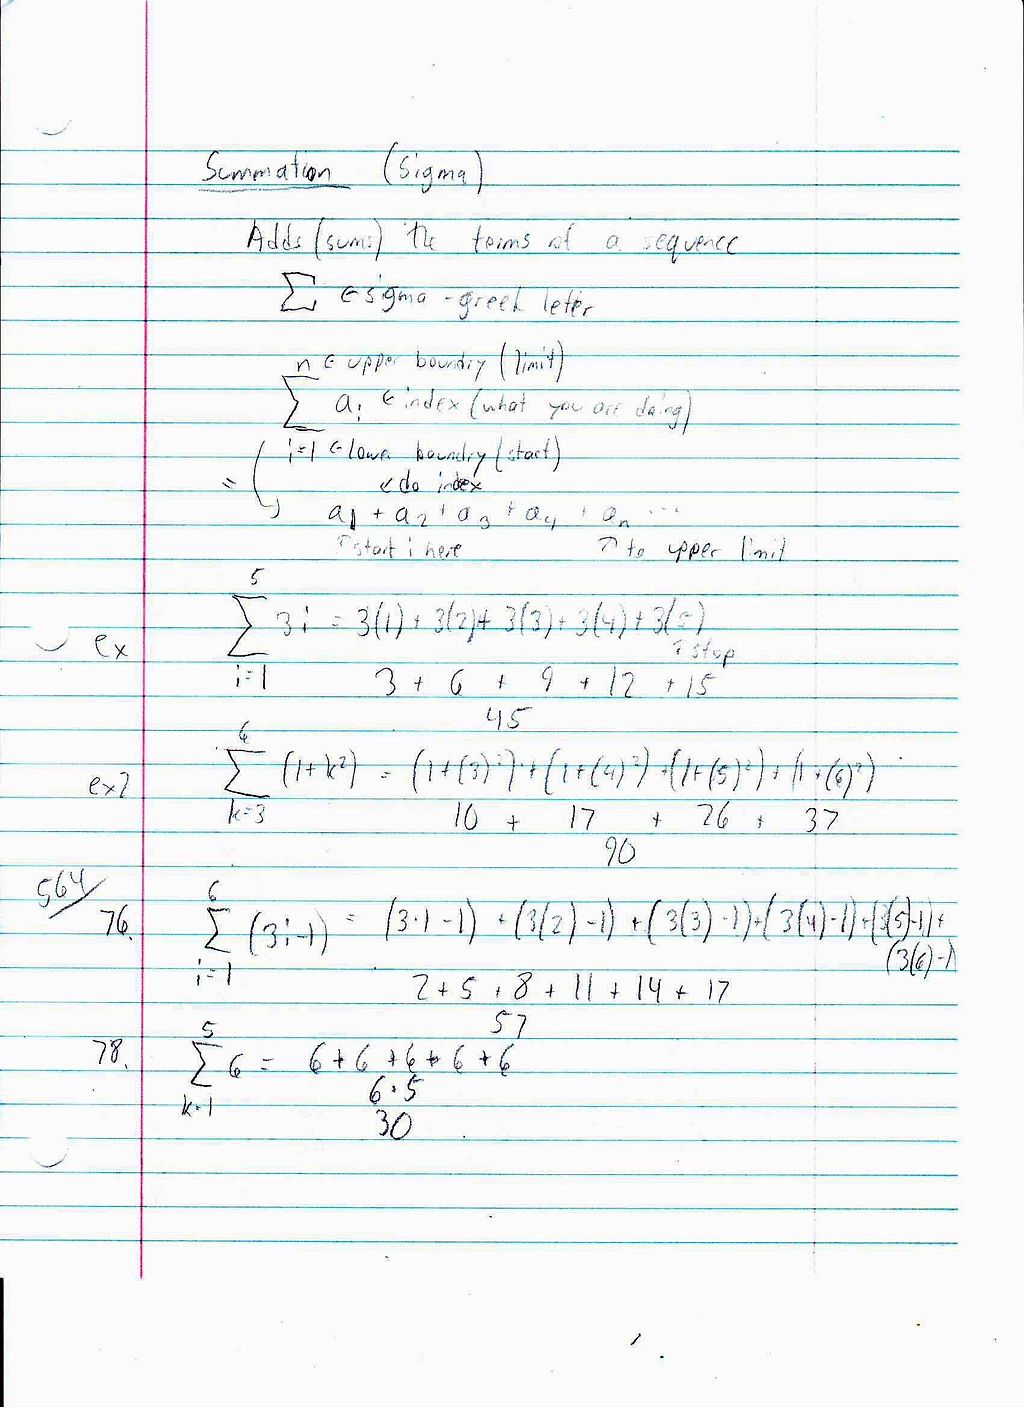 Summation (Sigma)
Adds (sums) the terms of a sequence
∑ ← sigma - greek letter
n ← upper boundry (limit)
∑ aᵢ ← index (what you are doing)
i=1 ← lower boundry (start)
= ↙ do index
a₁ + a₂ + a₃ + a₄ + aₙ ...
↑ start i here ↗ to upper limit
5
ex ∑ 3i = 3(1) + 3(2) + 3(3) + 3(4) + 3(5)
↑ stop
i=1 3 + 6 + 9 + 12 + 15
45
6
ex2 ∑ (1+k²) = (1+(3)²) + (1+(4)²) + (1+(5)²) + (1+(6)²)
k=3 10 + 17 + 26 + 37
90
564/
6
76. ∑ (3i-1) = (3·1-1) + (3(2)-1) + (3(3)-1) + (3(4)-1) + (3(5)-1) +
(3(6)-1
i=1
2 + 5 + 8 + 11 + 14 + 17
57
5
78. ∑ 6 = 6 + 6 + 6 + 6 + 6
k=1 6·5
30